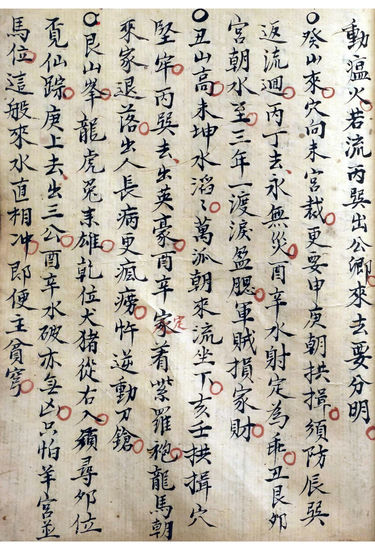 動瘟火若流丙巽出公卿來去要分明
癸山來穴向未宮裁更要申庚朝拱揖須防辰巽
返流迴丙丁去永無災酉辛水射定為乖丑艮卯
宮朝水至三年一渡淚盈腮軍賊損家財
丑山高未坤水滔々萬派朝來流坐丁亥壬拱揖穴
堅牢丙巽去出英豪酉辛家定着紫羅袍龍馬朝
來家退落出人長病更瘋癆忤逆動刀鎗
艮山峯龍虎兔耒雄乾位犬猪從右入須尋卯位
覓仙踪庚上去出三公酉辛水破亦無凶只怕羊宮並
馬位這般來水直相冲即便主貧窮